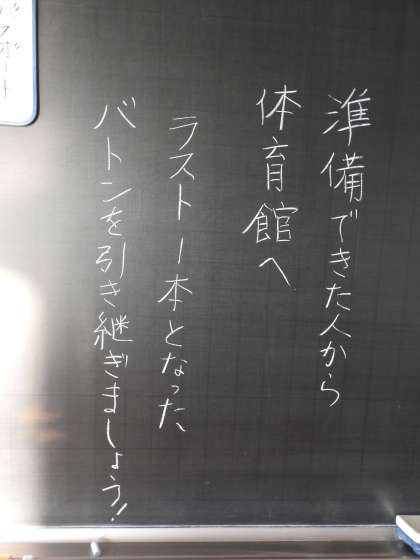 準備できた人から
体育館へ
ラスト1本となった、
バトンを引き継ぎましょう!